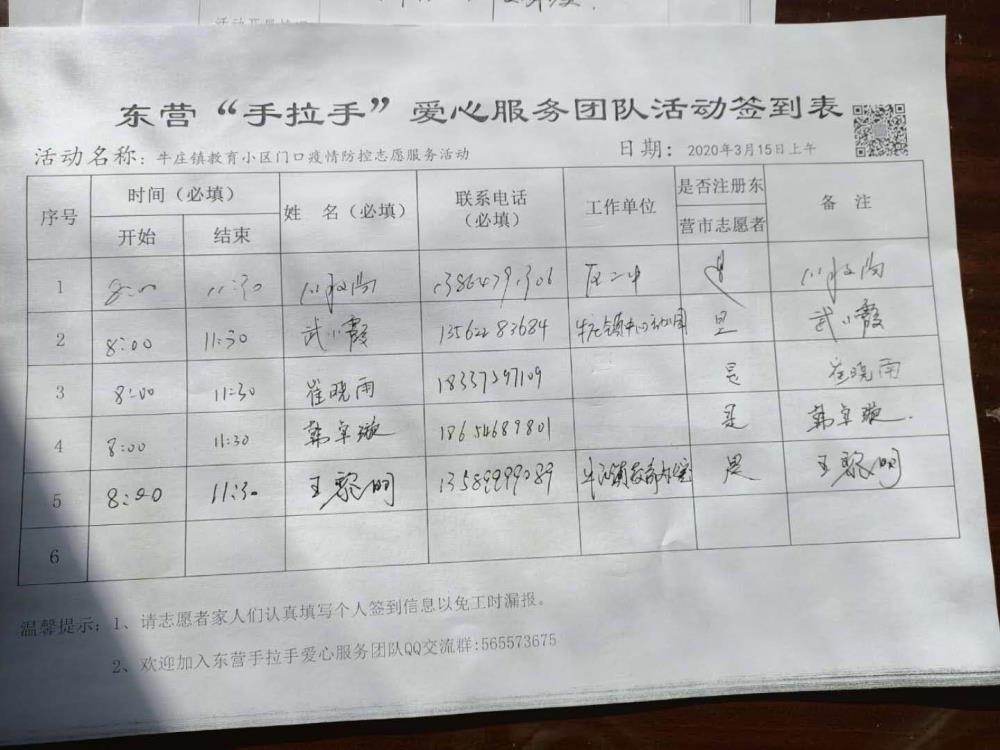 东营“手拉手”爱心服务团队活动签到表
活动名称：牛庄镇教育小区门口疫情防控志愿服务活动 日期：2020年3月15日上午
序号 时间（必填） 姓 名（必填） 联系电话（必填） 工作单位 是否注册东营市志愿者 备 注
开始 结束
1 8:00 11:30 是
2 8:00 11:30 武小霞 13562283684 牛庄镇中心幼儿园 是 武小霞
3 8:00 11:30 崔晓雨 18337597109 是 崔晓雨
4 8:00 11:30 韩卓璇 18654689801 是 韩卓璇
5 8:00 11:30 王黎明 13589999089 是 王黎明
6
温馨提示：1、请志愿者家人们认真填写个人签到信息以免工时漏报。
2、欢迎加入东营手拉手爱心服务团队QQ交流群:565573675